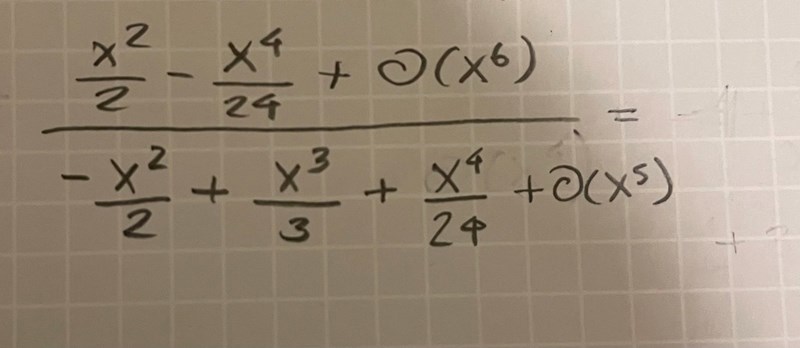 x²/2 - x⁴/24 + O(x⁶)
=
-x²/2 + x³/3 + x⁴/24 + O(x⁵)